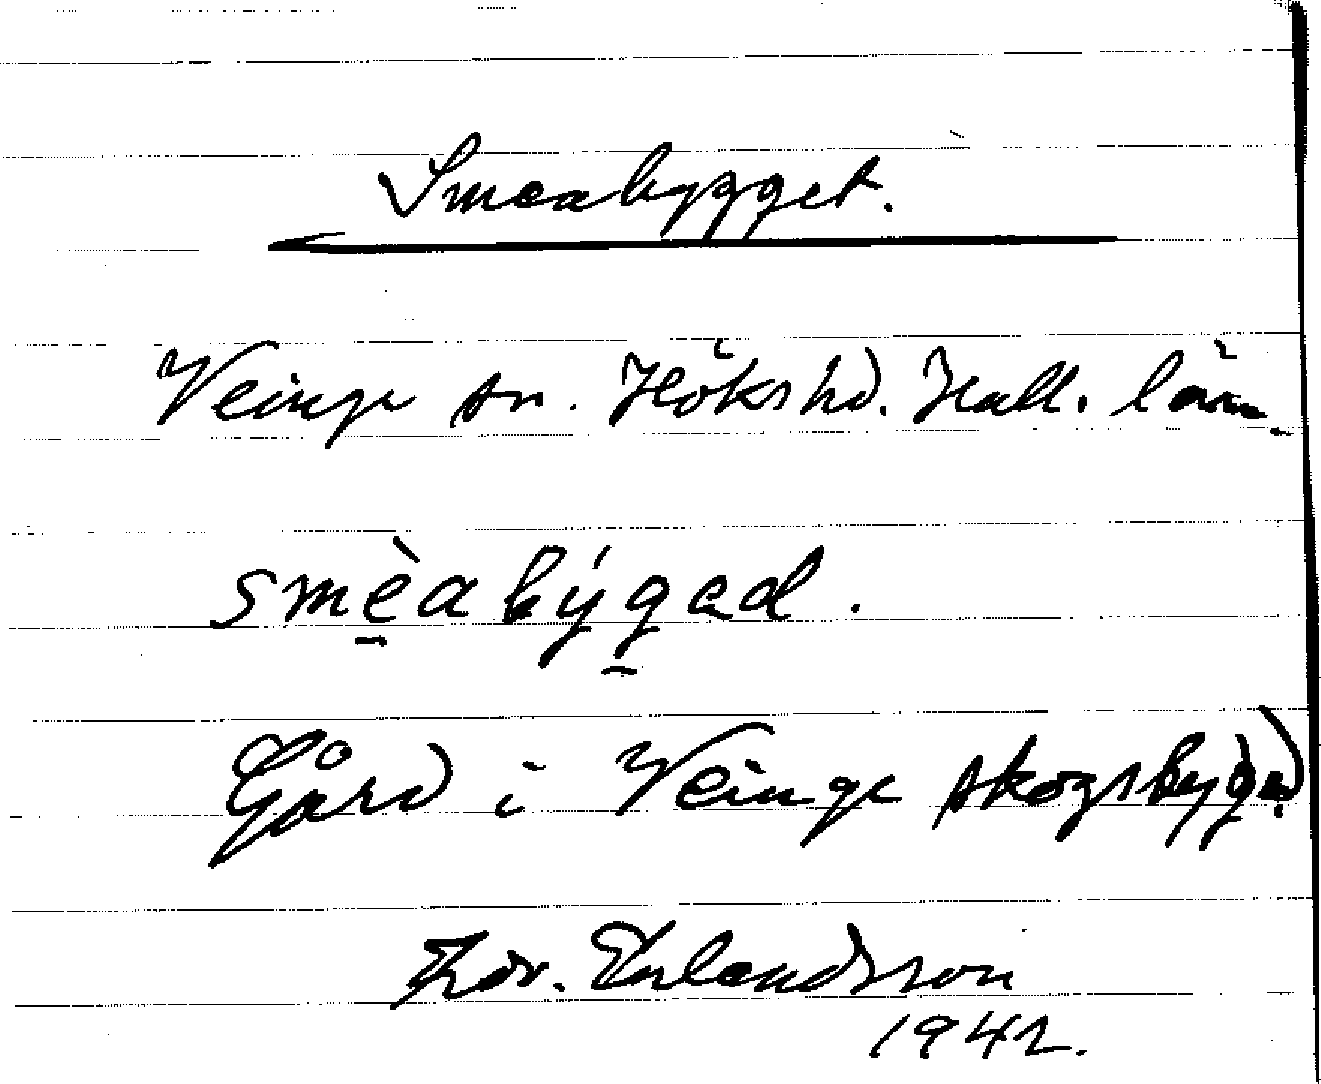 Smeabygget.
Veinge sn. Hökshd. Hall. län
smèabýgad.
Gård i Veinge skogsbygd.
Erlandsson
1942.